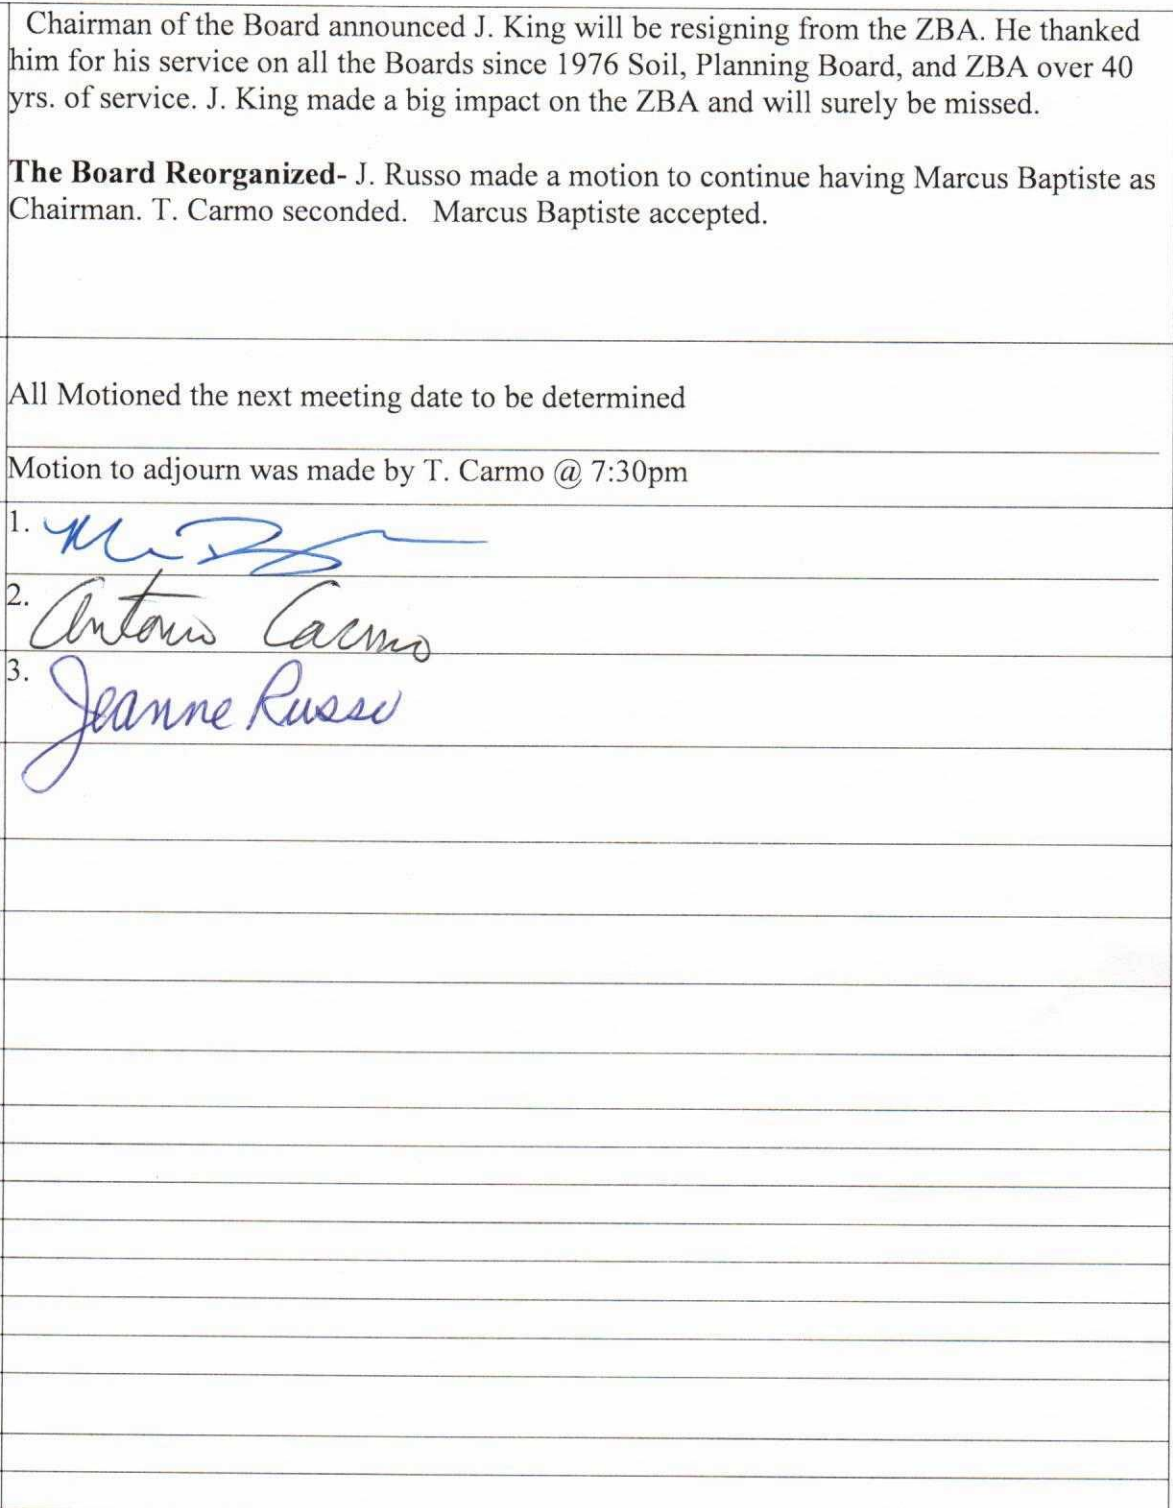 Chairman of the Board announced J. King will be resigning from the ZBA. He thanked
him for his service on all the Boards since 1976 Soil, Planning Board, and ZBA over 40
yrs. of service. J. King made a big impact on the ZBA and will surely be missed.
The Board Reorganized- J. Russo made a motion to continue having Marcus Baptiste as
Chairman. T. Carmo seconded. Marcus Baptiste accepted.
All Motioned the next meeting date to be determined
Motion to adjourn was made by T. Carmo @ 7:30pm
1.
2. Antonio Carmo
3. Jeanne Russo